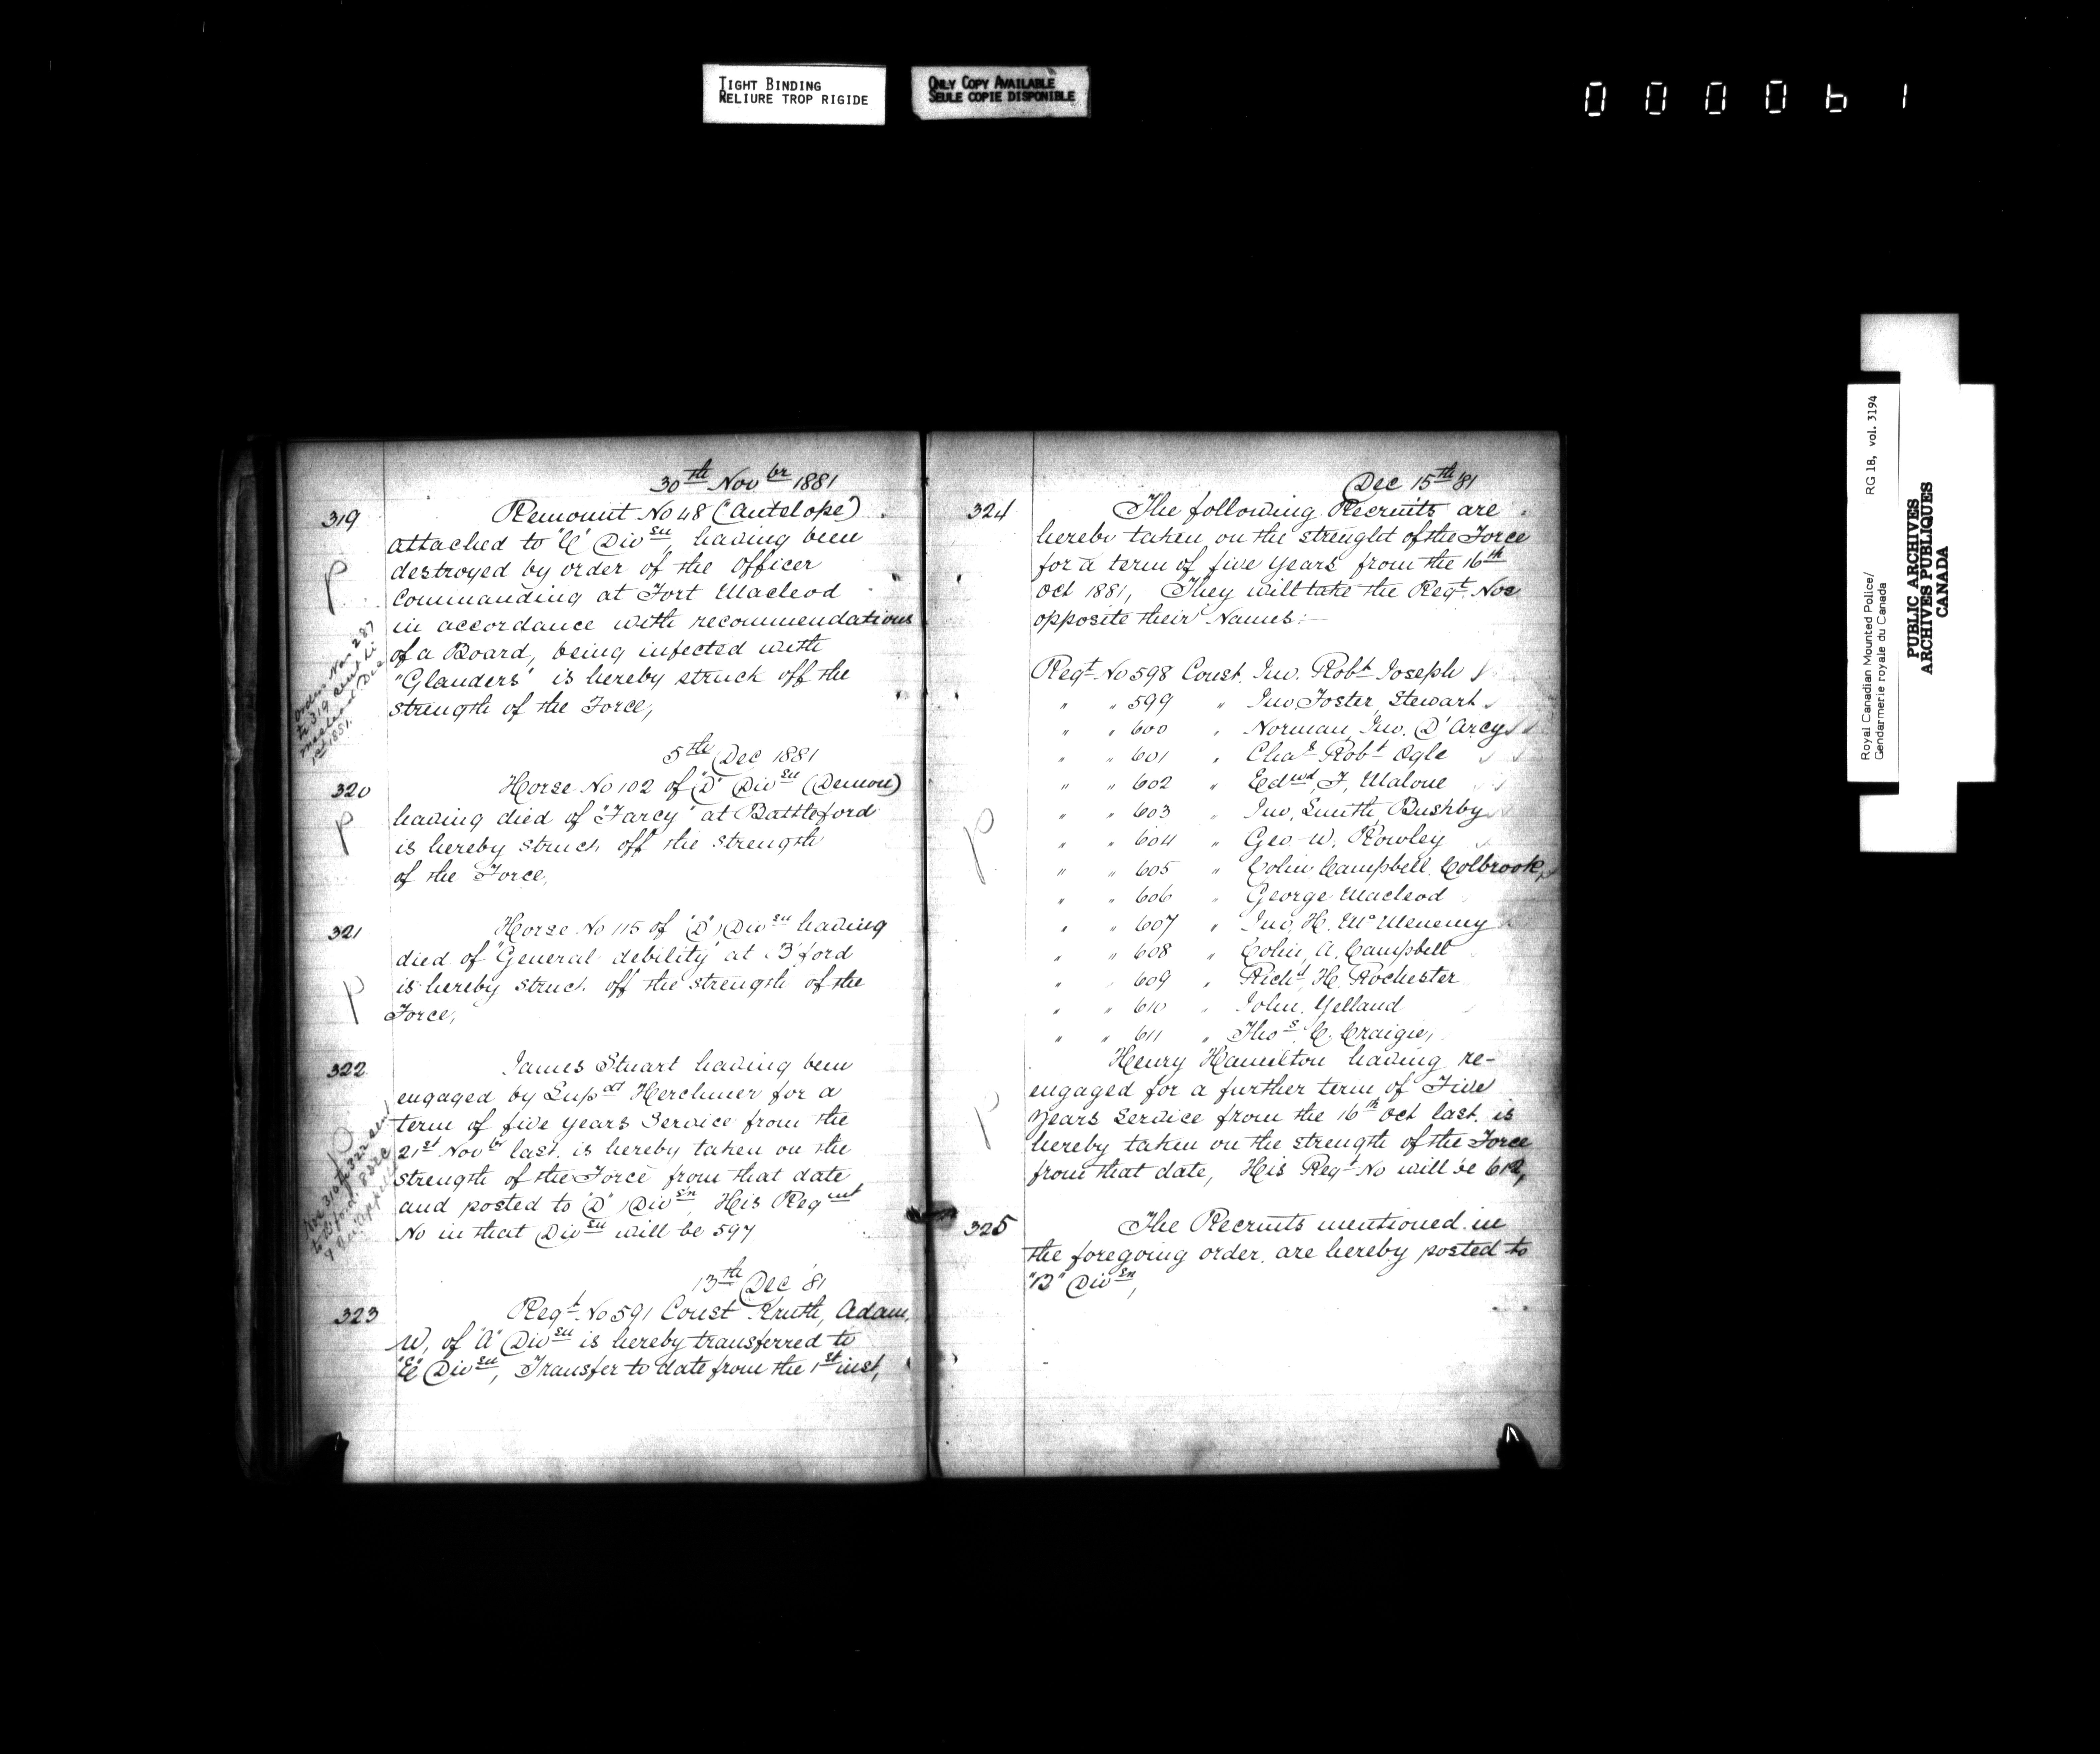 TIGHT BINDING
RELIURE TROP RIGIDE
ONLY COPY AVAILABLE
SEULE COPIE DISPONIBLE
000061
30th Novbr 1881
319
Remount No 48 (Antelope)
attached to "C" Divsn having been
destroyed by order of the Officer
Commanding at Fort Macleod
in accordance with recommendations
of a Board, being infected with
"Glanders" is hereby struck off the
strength of the Force,
5th Dec 1881
320
Horse No 102 of "D" Divsn (Demon)
having died of "Farcy" at Battleford
is hereby struck off the strength
of the Force,
321
Horse No 115 of "D" Divsn having
died of "General debility" at B'ford
is hereby struck off the strength of the
Force,
322
James Stuart having been
engaged by Supdt Herchmer for a
term of five years Service from the
21st Novbr last. is hereby taken on the
strength of the Force from that date
and posted to "D" Divsn, His Regmt
No in that Divsn will be 597
13th Dec '81
323
Regt No 591 Const Kruth, Adam,
W, of "A" Divsn is hereby transferred to
"E" Divsn, Transfer to date from the 1st inst,
Dec 15th 81
324
The following Recruits are
hereby taken on the strenght of the Force
for a term of five years from the 16th
Oct 1881, They will take the Regt Nos
opposite their Names:—
Regt No 598 Const. Jno. Robt Joseph
" " 599 " Jno Foster, Stewart
" " 600 " Norman, Jno. D'Arcy
" " 601 " Chas Robt Ogle
" " 602 " Edwd, F, Malone
" " 603 " Jno, Smith, Bushby
" " 604 " Geo W, Rowley
" " 605 " Colin Campbell. Colbrook,
" " 606 " George Macleod
" " 607 " Jno, H. McMenemy
" " 608 " Colin, A. Campbell
" " 609 " Richd, H. Rochester
" " 610 " John. Yelland
" " 611 " Thos C, Craigie,
Henry Hamilton having re-
engaged for a further term of Five
years Service from the 16th Oct last. is
hereby taken on the strength of the Force
from that date, His Regt No will be 612,
325
The Recruits mentioned in
the foregoing order. are hereby posted to
"B" Divsn,
Royal Canadian Mounted Police/
Gendarmerie royale du Canada
RG 18, vol. 3194
PUBLIC ARCHIVES
ARCHIVES PUBLIQUES
CANADA